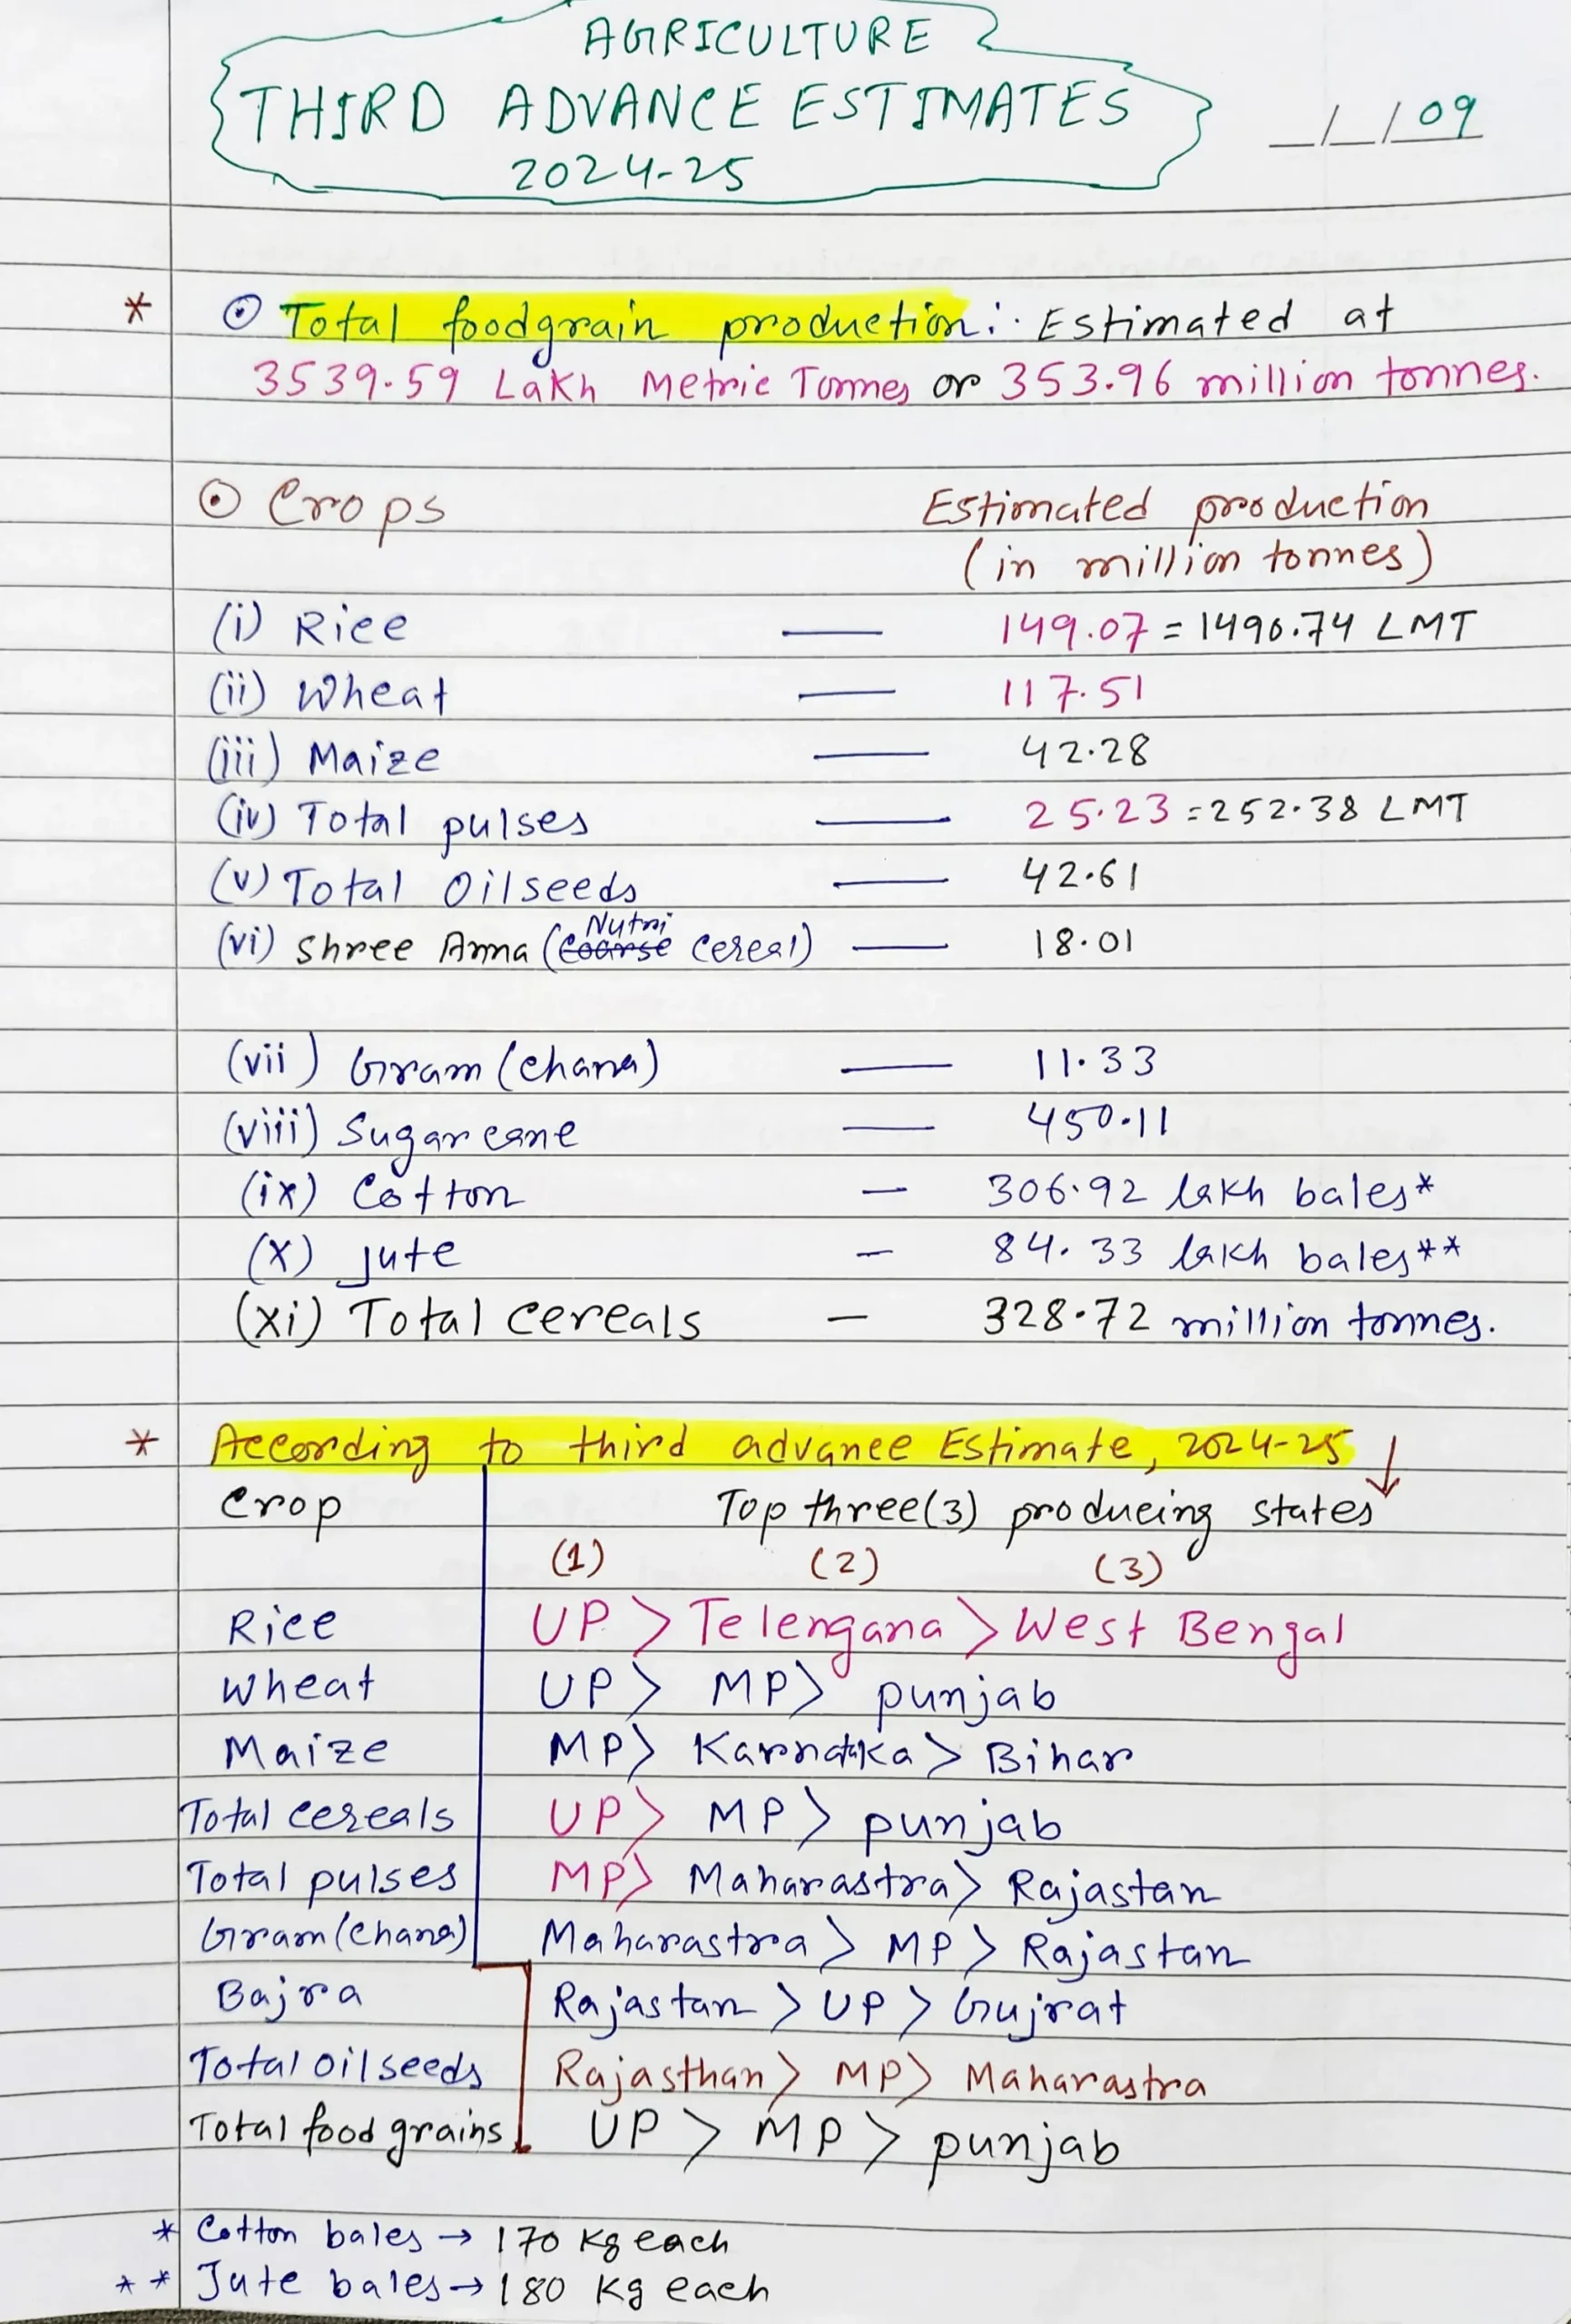 AGRICULTURE
THIRD ADVANCE ESTIMATES
2024-25
_/_/09
* ⊙ Total foodgrain production:· Estimated at
3539.59 Lakh Metric Tonnes or 353.96 million tonnes.
⊙ Crops Estimated production
(in million tonnes)
(i) Rice — 149.07 = 1490.74 LMT
(ii) Wheat — 117.51
(iii) Maize — 42.28
(iv) Total pulses — 25.23 = 252.38 LMT
(v) Total Oilseeds — 42.61
(vi) Shree Anna (Coarse Nutri cereal) — 18.01
(vii) Gram (chana) — 11.33
(viii) Sugarcane — 450.11
(ix) Cotton — 306.92 lakh bales*
(x) Jute — 84.33 lakh bales**
(xi) Total cereals — 328.72 million tonnes.
* According to third advance Estimate, 2024-25 ↓
Crop Top three(3) producing states
(1) (2) (3)
Rice UP > Telengana > West Bengal
Wheat UP > MP > punjab
Maize MP > Karnataka > Bihar
Total cereals UP > MP > punjab
Total pulses MP > Maharastra > Rajastan
Gram (chana) Maharastra > MP > Rajastan
Bajra Rajastan > UP > Gujrat
Total oilseeds Rajasthan > MP > Maharastra
Total food grains UP > MP > punjab
* Cotton bales → 170 Kg each
** Jute bales → 180 Kg each